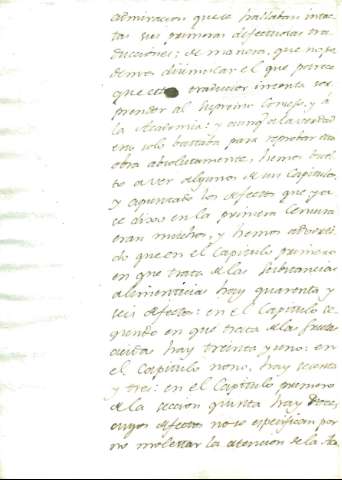 admiracion que se hallaban intac-
tas sus primeras defectuosas tra-
ducciones; de manera, que no po-
demos disimular el que parece
que este traductor intenta sor-
prender al Supremo Consejo, y á
la Academia: y aunq.e a la verdad
esto solo bastaba para reprobar esta
obra absolutamente, hemos buel-
to a ver algunos de sus Capitulos,
y apuntado los defectos que, ya
se dixo en la primera Censura
eran muchos, y hemos adverti-
do que en el Capitulo primero
en que trata de las substancias
alimenticias hay quarenta y
seis defectos: en el Capitulo se-
gundo en que trata de las frutas
cuidas hay treinta y uno: en
el Capitulo nono, hay sesenta
y tres: en el Capitulo primero
de la seccion quinta hay doce,
cuyos defectos no se especifican por
no molestar la atencion de la Aca